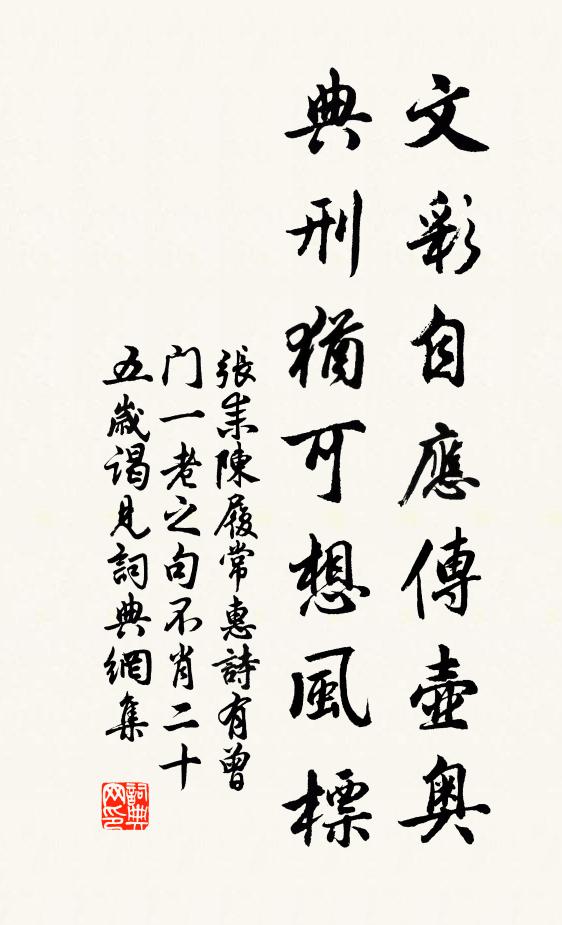 文彩自應傳壺奥
典刑猶可想風標
張耒陳履常惠詩有曾
门一老之句不肖二十
五歲谒見詞典網集
詞典
网印